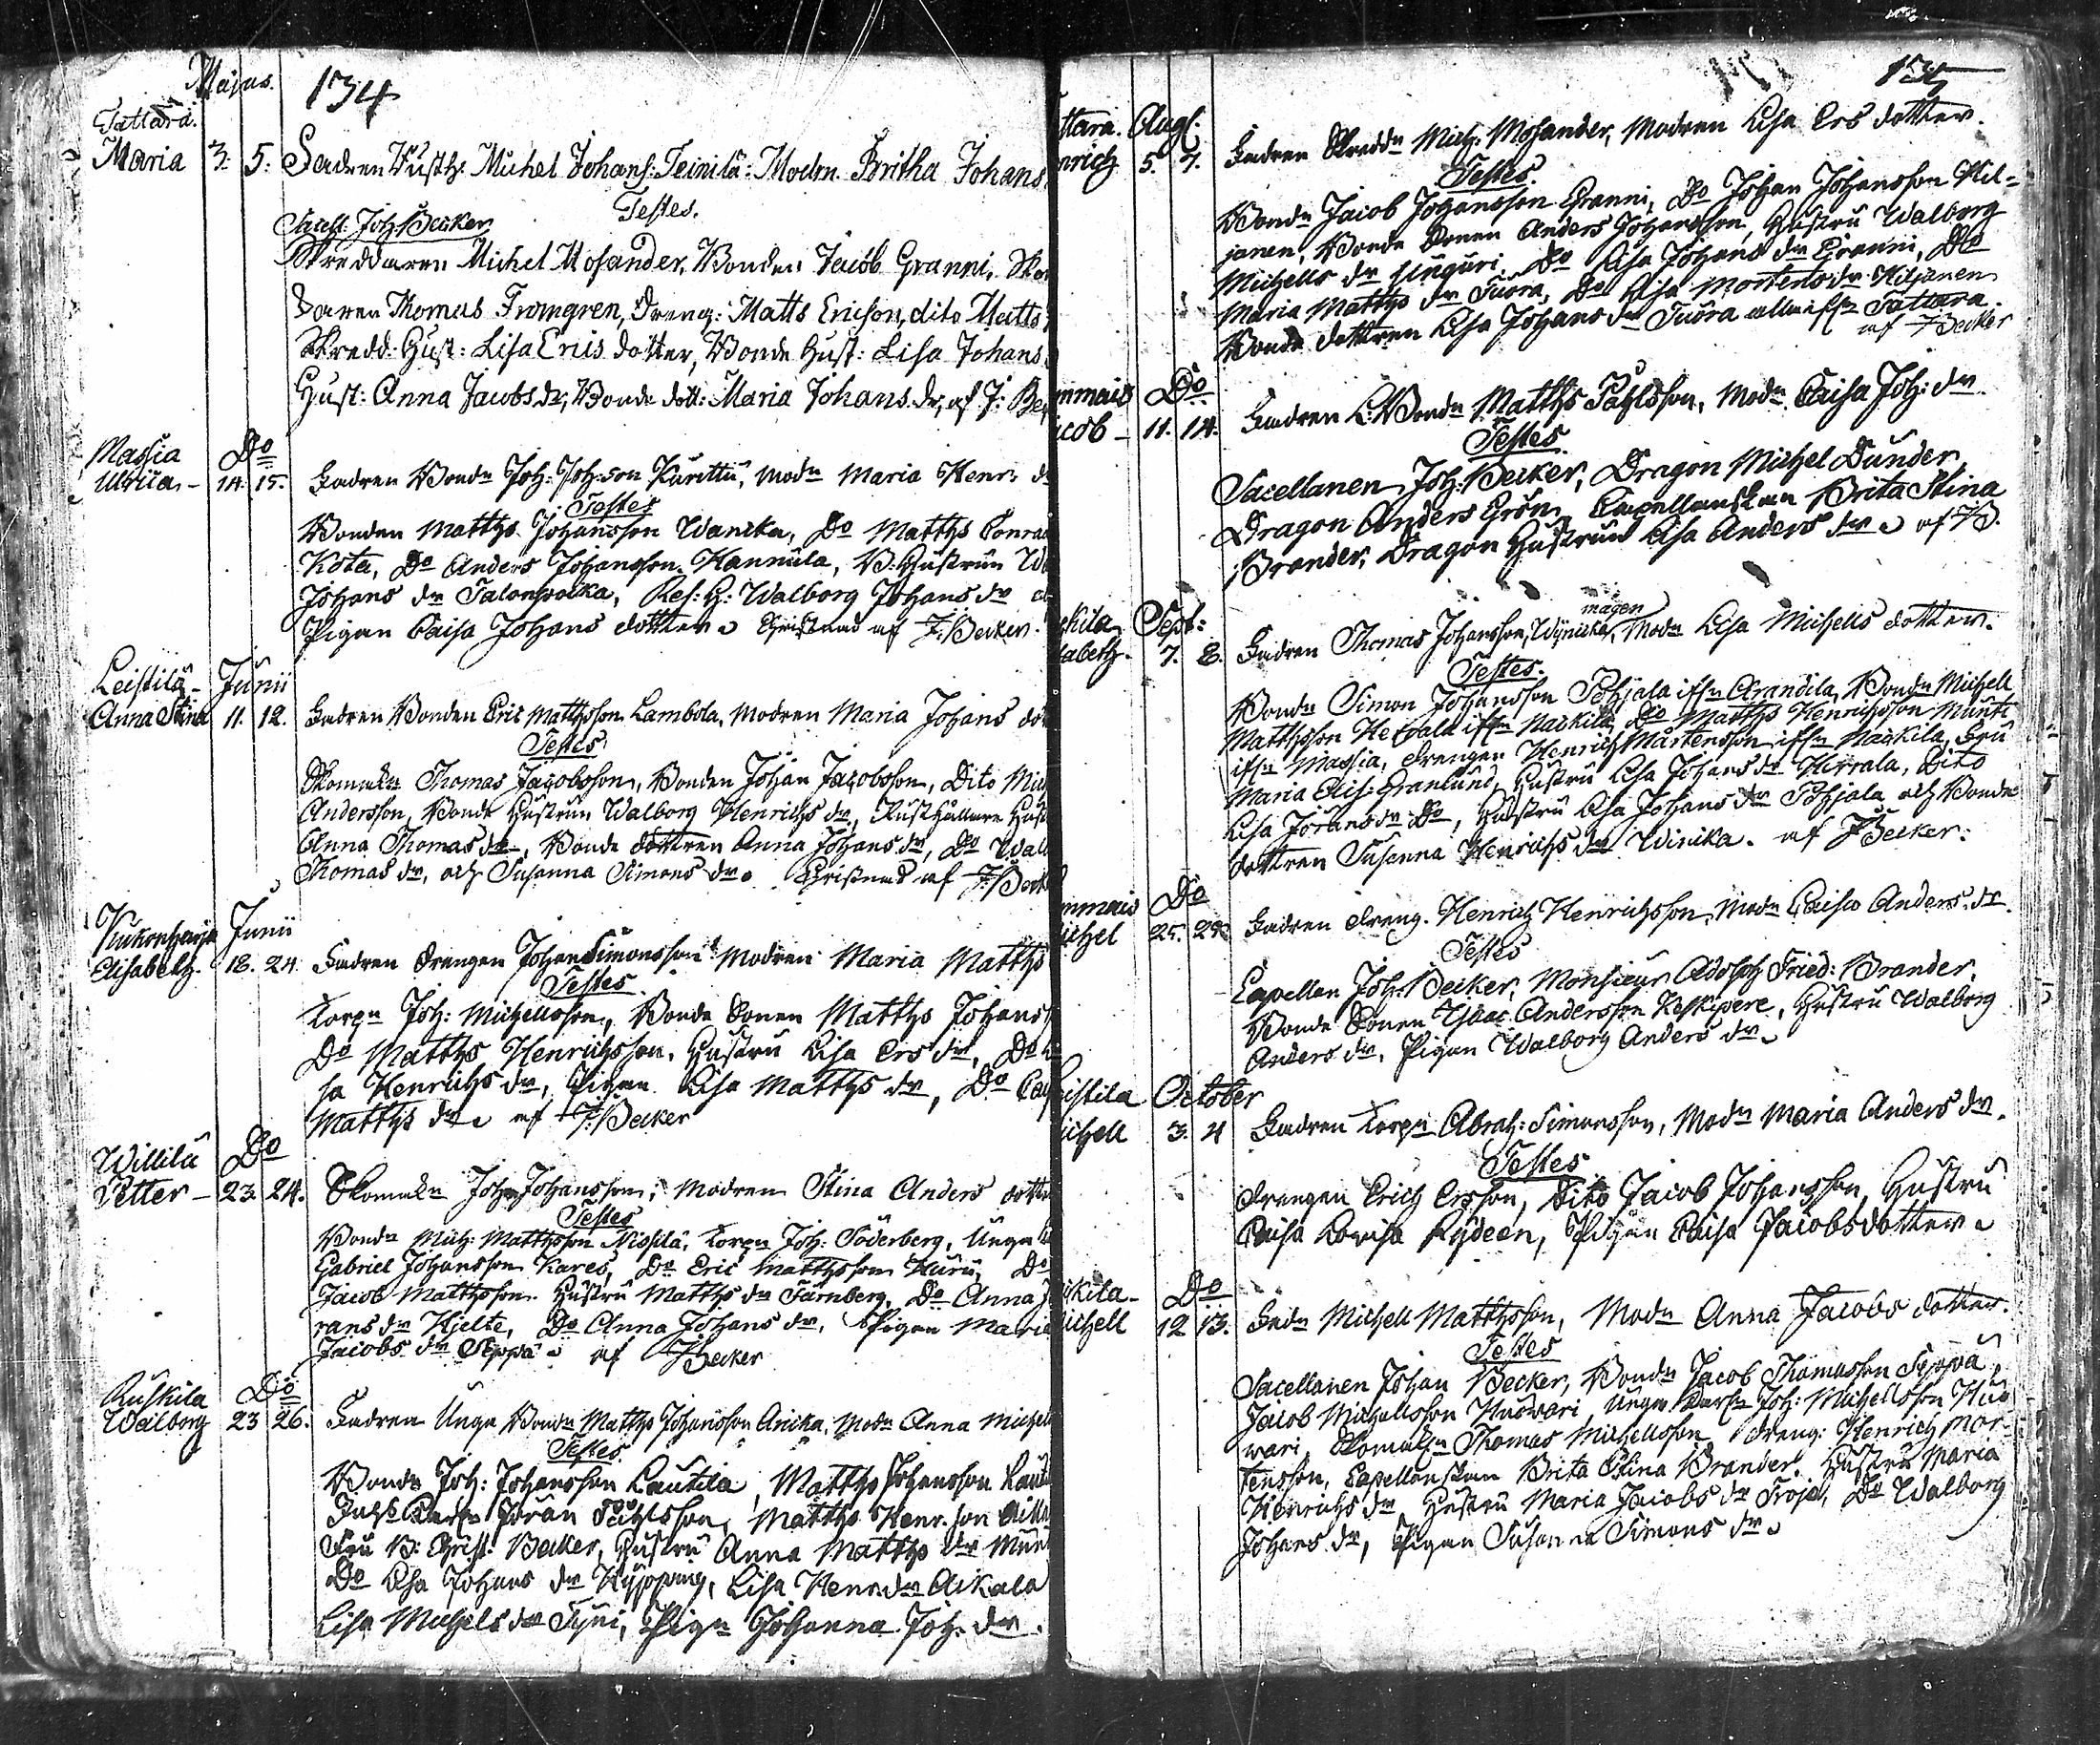 Majus.
134
Tattara.
Maria 3. 5. Fadren Rusth: Michel Johans: Teinilä: Modrn Britha Johans
Testes.
Sacell: Joh: Becker
Skreddaren Michel Mosander, Bonden Jacob Granni, Sko
Thomas Fromgren, Dreng: Matts Ericson, dito Matts
Skredd: Hust: Lisa Erics dotter, Bonde Hust: Lisa Johans
Hust: Anna Jacobs dr, Bonde dott: Maria Johans dr, af J: Be
Massia Do
Ulrica - 14. 15. Fadren Bondn Joh: Joh:son Kurittu, Modn Maria Henr: d
Testes
Bonden Matths Johansson Wanika, Do Matths Conra
Kota, Do Anders Johansson Hannula, B. Hustrun
Johans dr Talonpoika, Res: H: Walborg Johans dr
Pigan Caisa Johans dotter Christnad af J: Becker.
Leistilä - Junii
Anna Stina 11. 12. Fadren Bonden Eric Matthsson Lambola, Modren Maria Johans dot
Testes
Skomakn Thomas Jacobsson, Bonden Johan Jacobsson, Dito Mich
Andersson, Bonde Hustrun Walborg Henrichs dr, Rusthållare Hust
Anna Thomas dr, Bonde dottren Anna Johans dr, Do Walb
Thomas dr, och Susanna Simons dr. Christnad af J: Beck
Kukonharja Junii
Elisabeth. 18. 24. Fadren Drengen Johan Simonsson Modren Maria Matths
Testes
Torpn Joh: Michellsson, Bonde Sonen Matths Johanss
Do Matths Henrichsson, Hustru Lisa Ers dr, Do
sa Henrichs dr, Pigan Lisa Matths dr, Do Cai
Matths dr af J: Becker
Willilä Do
Petter - 23. 24. Skomakn Joh: Johansson, Modren Stina Anders dotte
Testes
Bondn Mich: Matthsson Nissilä, Torpn Joh: Söderberg, Unga
Gabriel Johansson Kares, Do Eric Matthsson Huru, Do
Jacob Matthsson. Hustru Matths dr Färnberg, Do Anna J
rans dr Hjelte, Do Anna Johans dr, Pigan Maria
Jacobs dr Seppä af J Becker
Ruskila Do
Walborg 23 26. Fadren Unga Bondn Matths Johansson Anika, Modn Anna Michell
Testes.
Bondn Joh: Johansson Lautila, Matths Johansson
Jöran Påhlsson, Matths Henr:son
Fru B: Christ: Becker, Hustru Anna Matths dr Munt
Do Lisa Johans dr Hyöpping, Lisa Henr: dr Aikala
Lisa Michels dr Tyni, Pign Johanna Joh: dr.
135
ttara. Aug:
nrich 5. 7. Fadren Skreddn Mich: Mosander, Modren Lisa Ers dotter.
Testes.
Bondn Jacob Johansson Granni, Do Johan Johansson Kil=
janen, Bonde Sonen Anders Johansson, Hustru Walborg
Michells dr Unguri, Do Lisa Johans dr Granni, Do
Maria Matths dr Tuora, Do Lisa Mortens dr Kiljanen
Bonde dottren Lisa Johans dr Tuora alla ifrn Tattara.
af J Becker
mmais Do
cob - 11. 14. Fadren Bondn Matths Påhlsson, Modn Caisa Joh: dr.
Testes
Sacellanen Joh: Becker, Dragon Michel Dunder,
Dragon Anders Grön, Capellanskan Brita Stina
Brander, Dragon Hustrun Lisa Anders dr af JB.
skila Sept:
sabeth. 7. 8. Fadren Thomas Johansson, Wynicka, magen Modn Lisa Michells dotter.
Testes.
Bondn Simon Johansson Pohjala ifrn Arandila, Bondn Michell
Matthsson Hervala ifrn Naskila, Do Matths Henrichsson Munti
ifrn Massia, Drengen Henrich Mårtensson ifrn Naskila, Fru
Maria Elis: Granlund, Hustru Lisa Johans dr Hervala, Dito
Lisa Jörans dr Do, Hustru Lisa Johans dr Pohjala och Bonde
dottren Susanna Henrichs dr Winika. af J Becker.
mmais Do
ichel 25. 29. Fadren Dreng. Henrich Henrichsson, Modn Caisa Anders dr.
Testes
Capellan Joh: Becker, Monsieur Adolph Fried: Brander,
Bonde Sonen Isaac Andersson Keskipere, Hustru Walborg
Anders dr, Pigan Walborg Anders dr
eistila October
ichell 3. 4 Fadren Torpn Abrah: Simonsson, Modn Maria Anders dr.
Testes
Drengen Erich Ersson, Dito Jacob Johansson, Hustru
Caisa Lovisa Rydeen, Pigan Caisa Jacobsdotter
skila - Do
Michell 12 13. Fadn Michell Matthsson, Modn Anna Jacobs dotter.
Testes
Sacellanen Johan Becker, Bondn Jacob Thomasson Seppä,
Jacob Michellsson Huswari, Unge Karln Joh: Michellsson Hus
wari, Skomakn Thomas Michellsson, Dreng: Henrich Mor-
tensson, Capellanskan Brita Stina Brander, Hustru Maria
Henrichs dr, Hustru Maria Jacobs dr Troja, Do Walborg
Johans dr, Pigan Susanna Simons dr